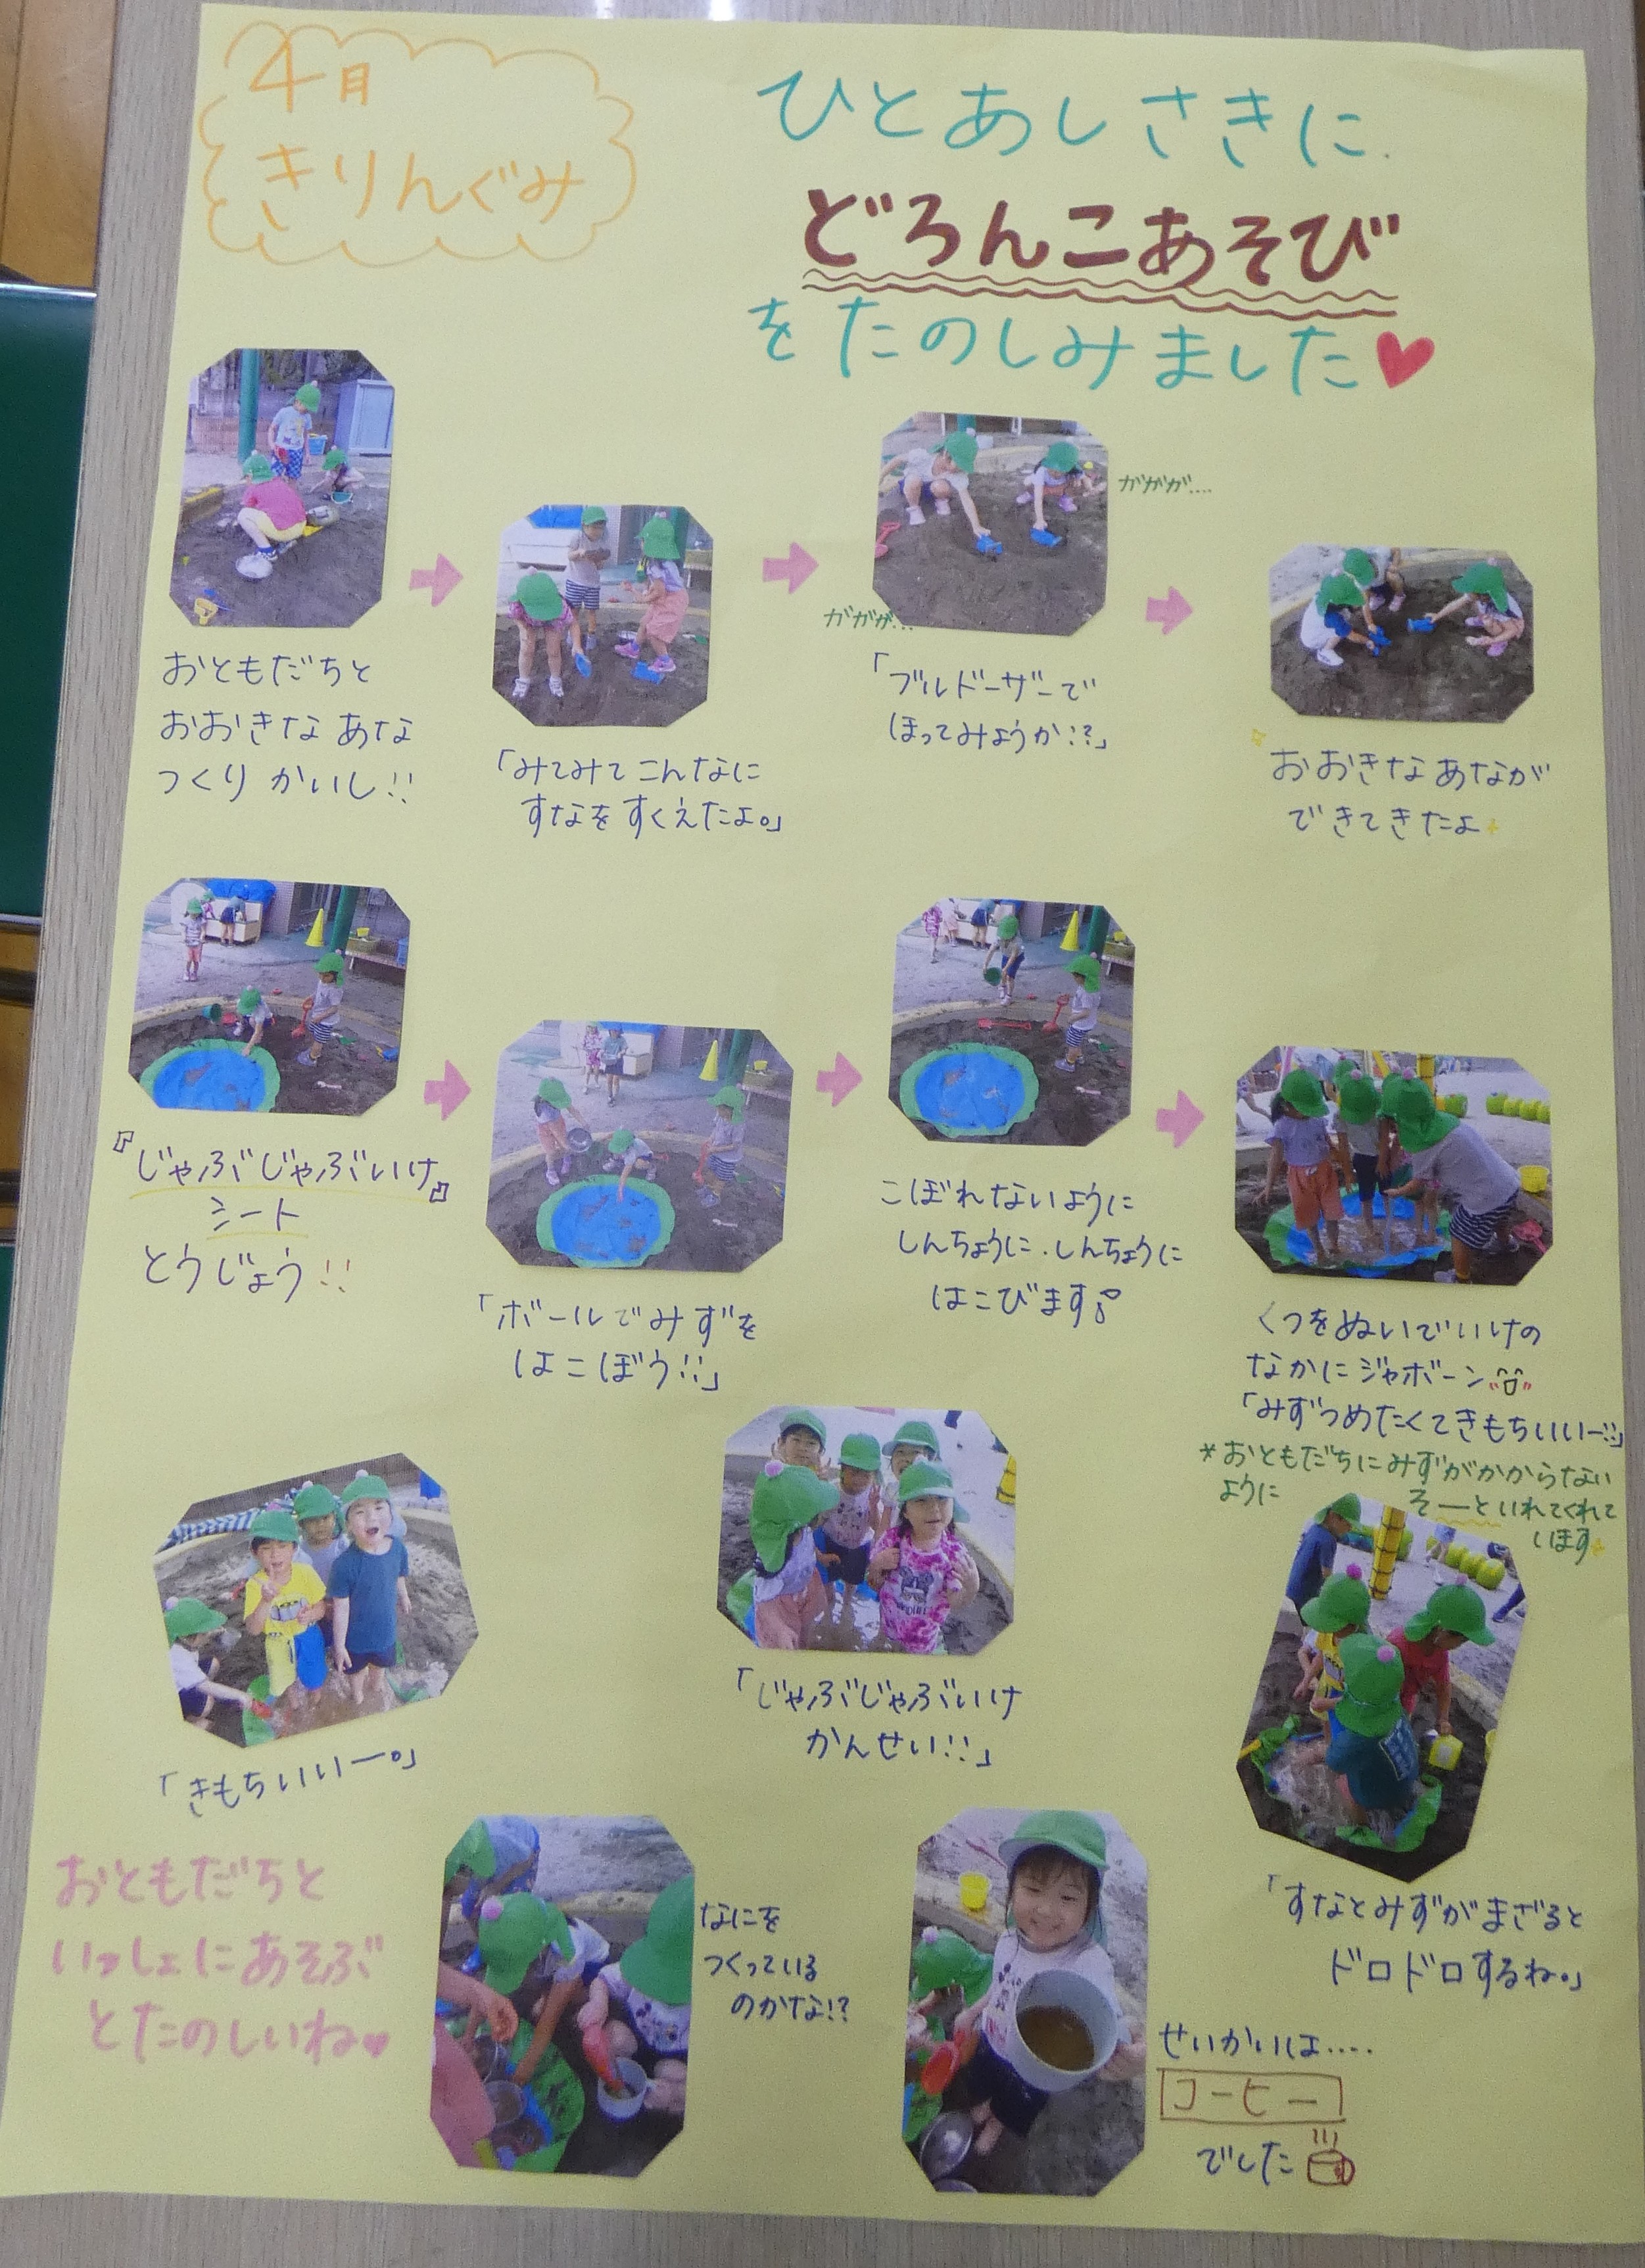 4月
きりんぐみ
ひとあしさきに
どろんこあそび
をたのしみました
おともだちと
おおきな あな
つくり かいし!!
「みてみて こんなに
すなを すくえたよ。」
ガガガ…
ガガガ…
「ブルドーザーで
ほってみようか!?」
おおきな あなが
できてきたよ
『じゃぶじゃぶいけ』
シート
とうじょう!!
「ボールでみずを
はこぼう!!」
こぼれないように
しんちょうに、しんちょうに
はこびます
くつをぬいでいけの
なかに ジャボーン
「みずつめたくてきもちいいー!!」
*おともだちにみずがかからない
ように
そーっといれてくれて
います
「きもちいいー。」
「じゃぶじゃぶいけ
かんせい!!」
「すなとみずがまざると
ドロドロするね。」
おともだちと
いっしょにあそぶ
とたのしいね
なにを
つくっている
のかな!?
せいかいは….
コーヒー
でした